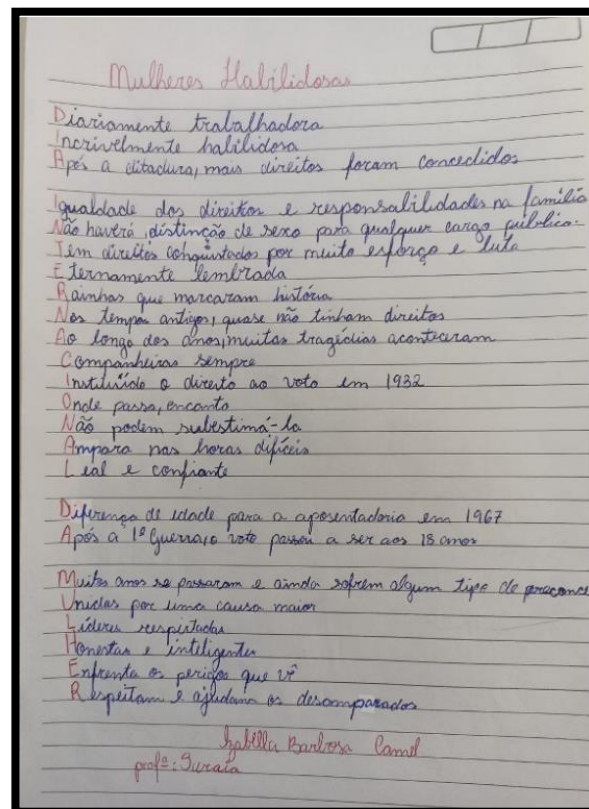 Mulheres Habilidosas
Diariamente trabalhadora
Incrivelmente habilidosa
Após a ditadura, mais direitos foram concedidos
Igualdade dos direitos e responsabilidades na família
Não haverá distinção de sexo para qualquer cargo público.
Tem direitos conquistados por muito esforço e luta
Eternamente lembrada
Rainhas que marcaram história
Nos tempos antigos, quase não tinham direitos
Ao longo dos anos, muitas tragédias aconteceram
Companheiras sempre
Instituído o direito ao voto em 1932
Onde passa, encanta
Não podem subestimá-la
Ampara nas horas difíceis
Leal e confiante
Diferença de idade para a aposentadoria em 1967
Após a 1ª Guerra, o voto passou a ser aos 18 anos
Muitos anos se passaram e ainda sofrem algum tipo de preconce
Unidas por uma causa maior
Líderes respeitadas
Honestas e inteligentes
Enfrenta os perigos que vê
Respeitam e ajudam os desamparados
Izabella Barbosa Camel
profª: Suraia